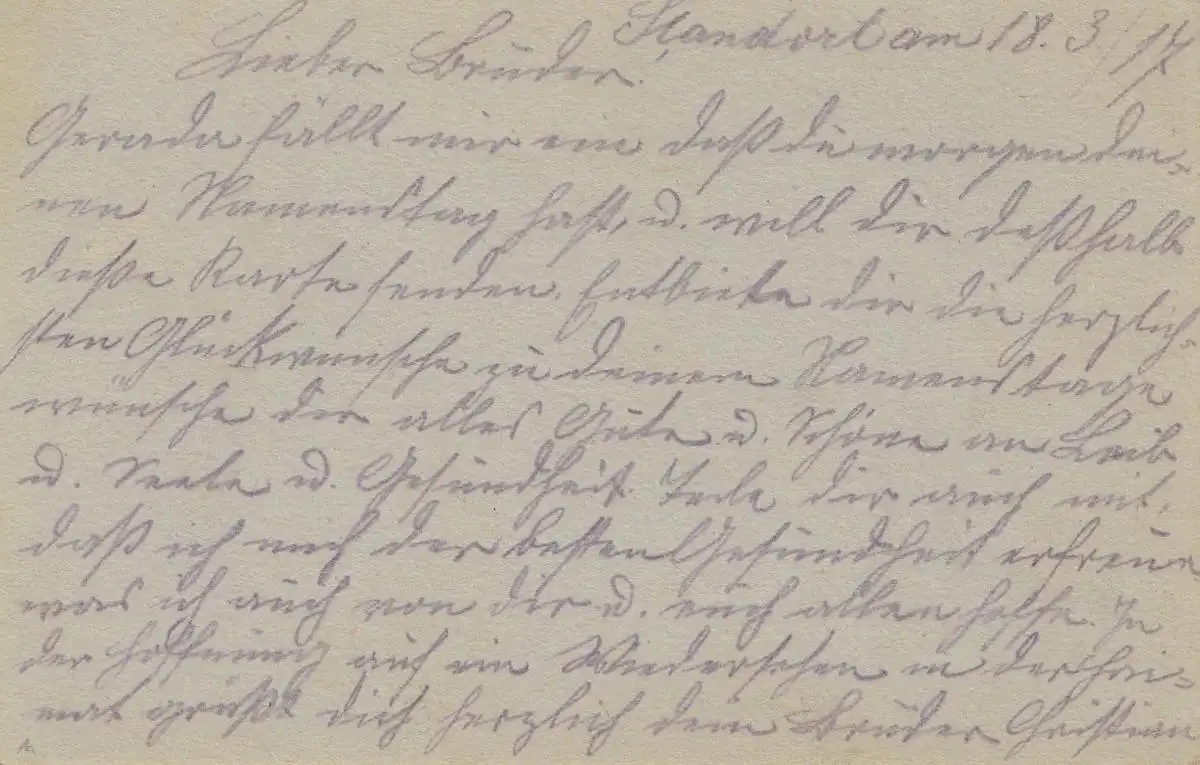 Standort am 18. 3./17
Lieber Bruder!
Gerade fällt mir ein daß du morgen dei-
nen Namenstag hast, u. will dir deßhalb
dieße Karte senden. Entbiete dir die herzlich-
sten Glückwunsche zu deinem Namenstage
wünsche dir alles Gute u. Schöne an Leib
u. Seele u. Gesundheit. Teile dir auch mit,
daß ich mich der besten Gesundheit erfreue
was ich auch von dir u. euch allen hoffe. In
der Hoffnung auf ein Wiedersehen in der Hei-
mat grüßt dich herzlich dein Bruder Christian